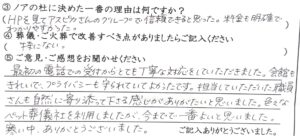 ③ノアの杜に決めた一番の理由は何ですか？
(HPを見てアスピカさんのグループで信頼できると思った。料金も明確で
わかりやすかった。)
④葬儀・ご火葬で改善すべき点がありましたらご記入ください
(特にない。)
⑤ご意見・ご感想をお聞かせください
最初の電話での受付からとても丁寧な対応をしていただきました。会館も
きれいで、プライバシーも守られていてよかったです。担当していただいた職員
さんも自然に寄り添って下さる感じがありがたいと思いました。色々な
ペット葬儀社を利用しましたが、今までで一番よいと思いました。
寒い中、ありがとうございました。
ご記入ありがとうございました。